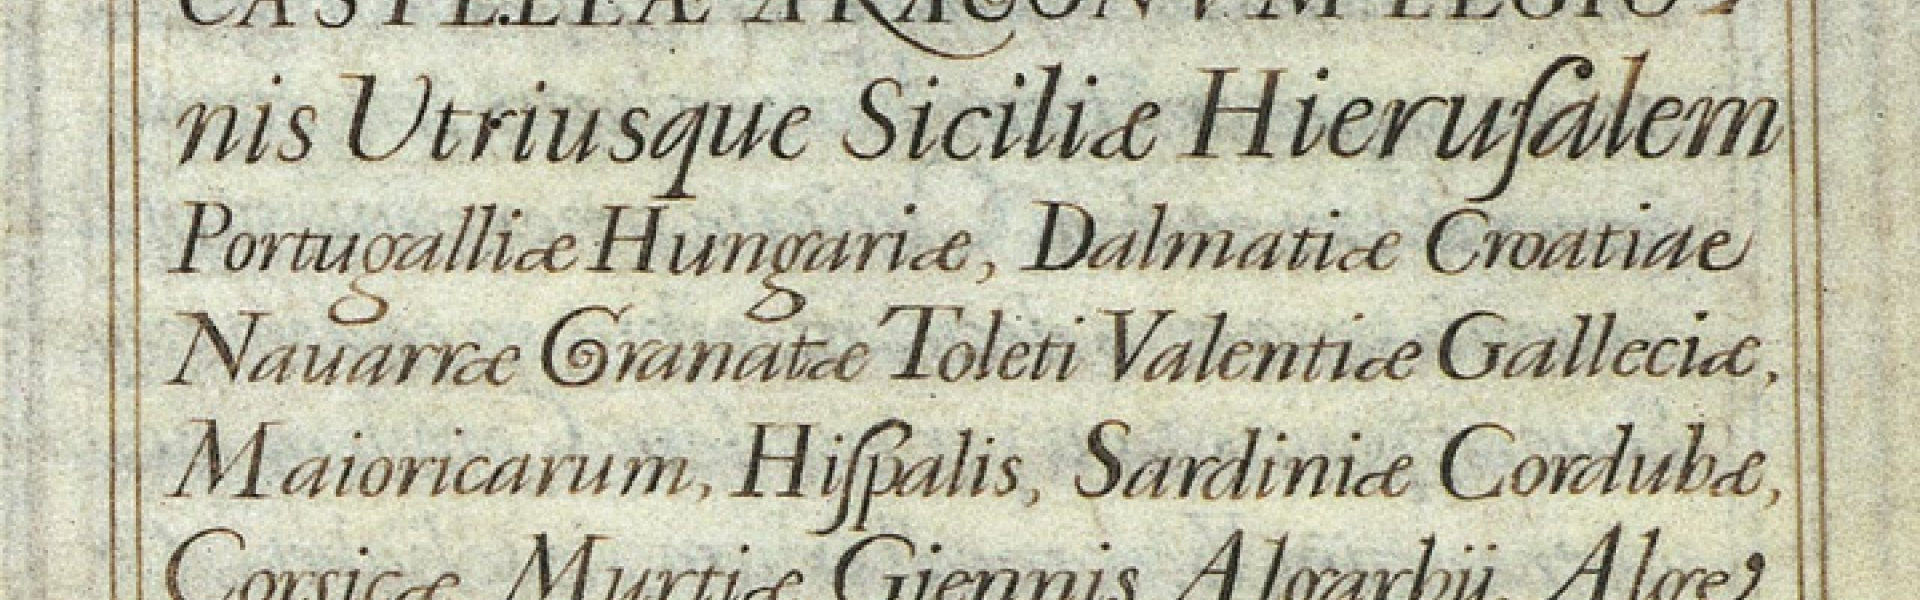 CASTELLÆ ARAGONVM LEGIO-
nis Utriusque Siciliæ Hieruſalem
Portugalliæ Hungariæ, Dalmatiæ Croatiae
Nauarræ Granatæ Toleti Valentiæ Galleciæ,
Maioricarum, Hiſpalis, Sardiniæ Cordubæ,
Corsicæ Murtiæ Giennis Algarbij, Alge